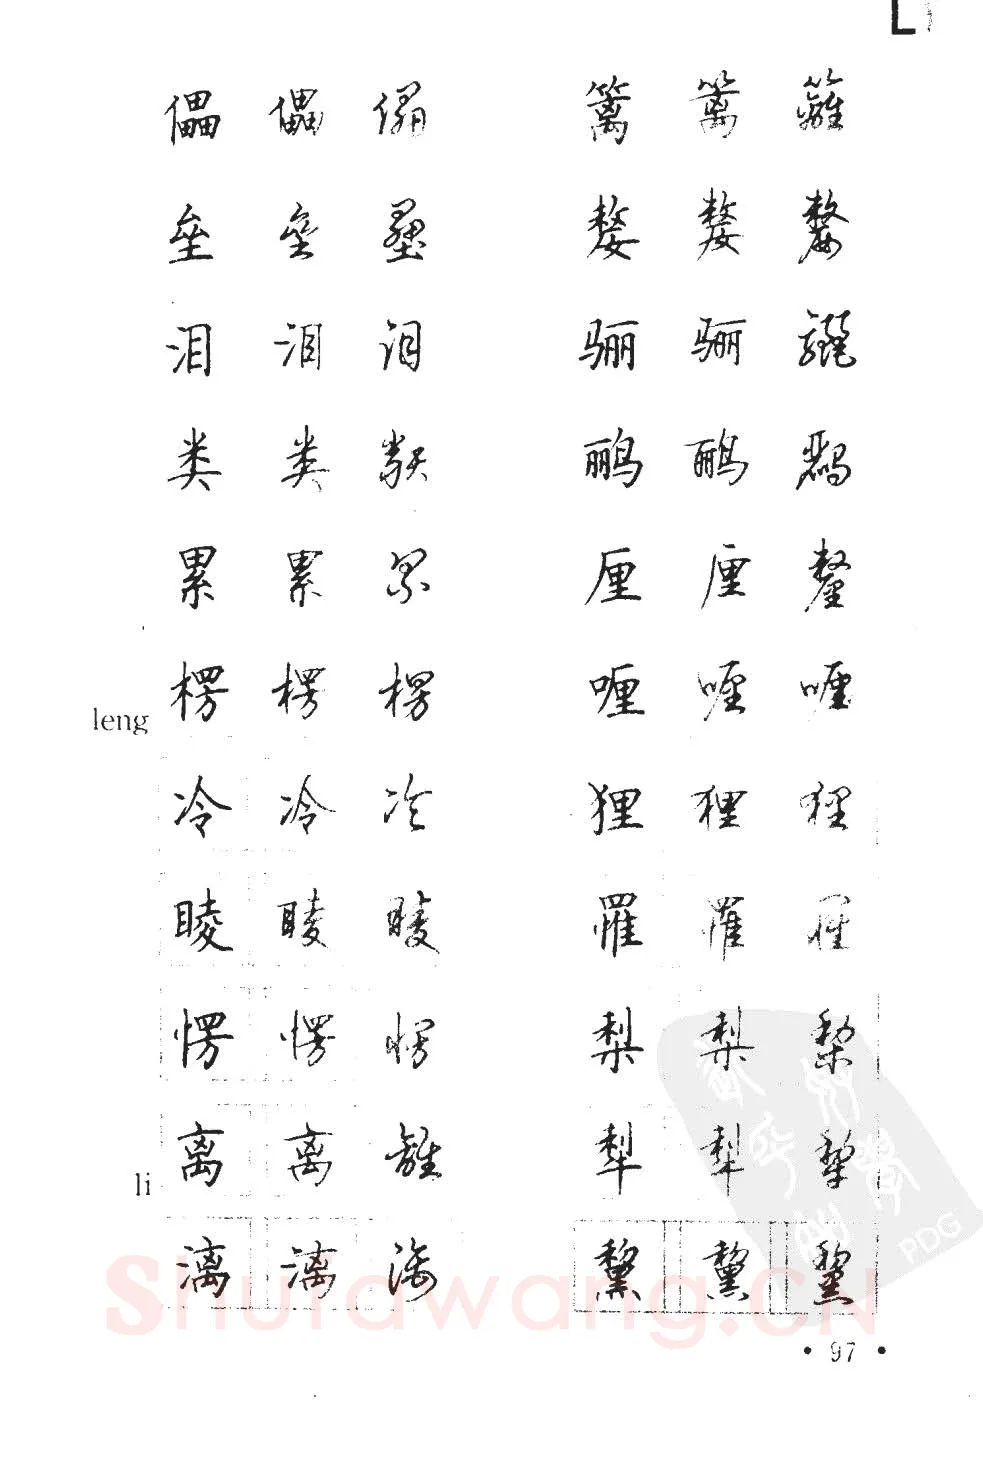 L
儡 儡 儡
垒 垒 壘
泪 泪 泪
类 类 類
累 累 累
leng
楞 楞 楞
冷 冷 冷
睖 睖 睖
愣 愣 愣
li
离 离 離
漓 漓 漓
篱 篱 籬
嫠 嫠 嫠
骊 骊 驪
鹂 鹂 鸝
厘 厘 釐
喱 喱 喱
狸 狸 狸
罹 罹 罹
梨 梨 梨
犁 犁 犁
黧 黧 黧
• 97 •
Shufawang.CN
PDG